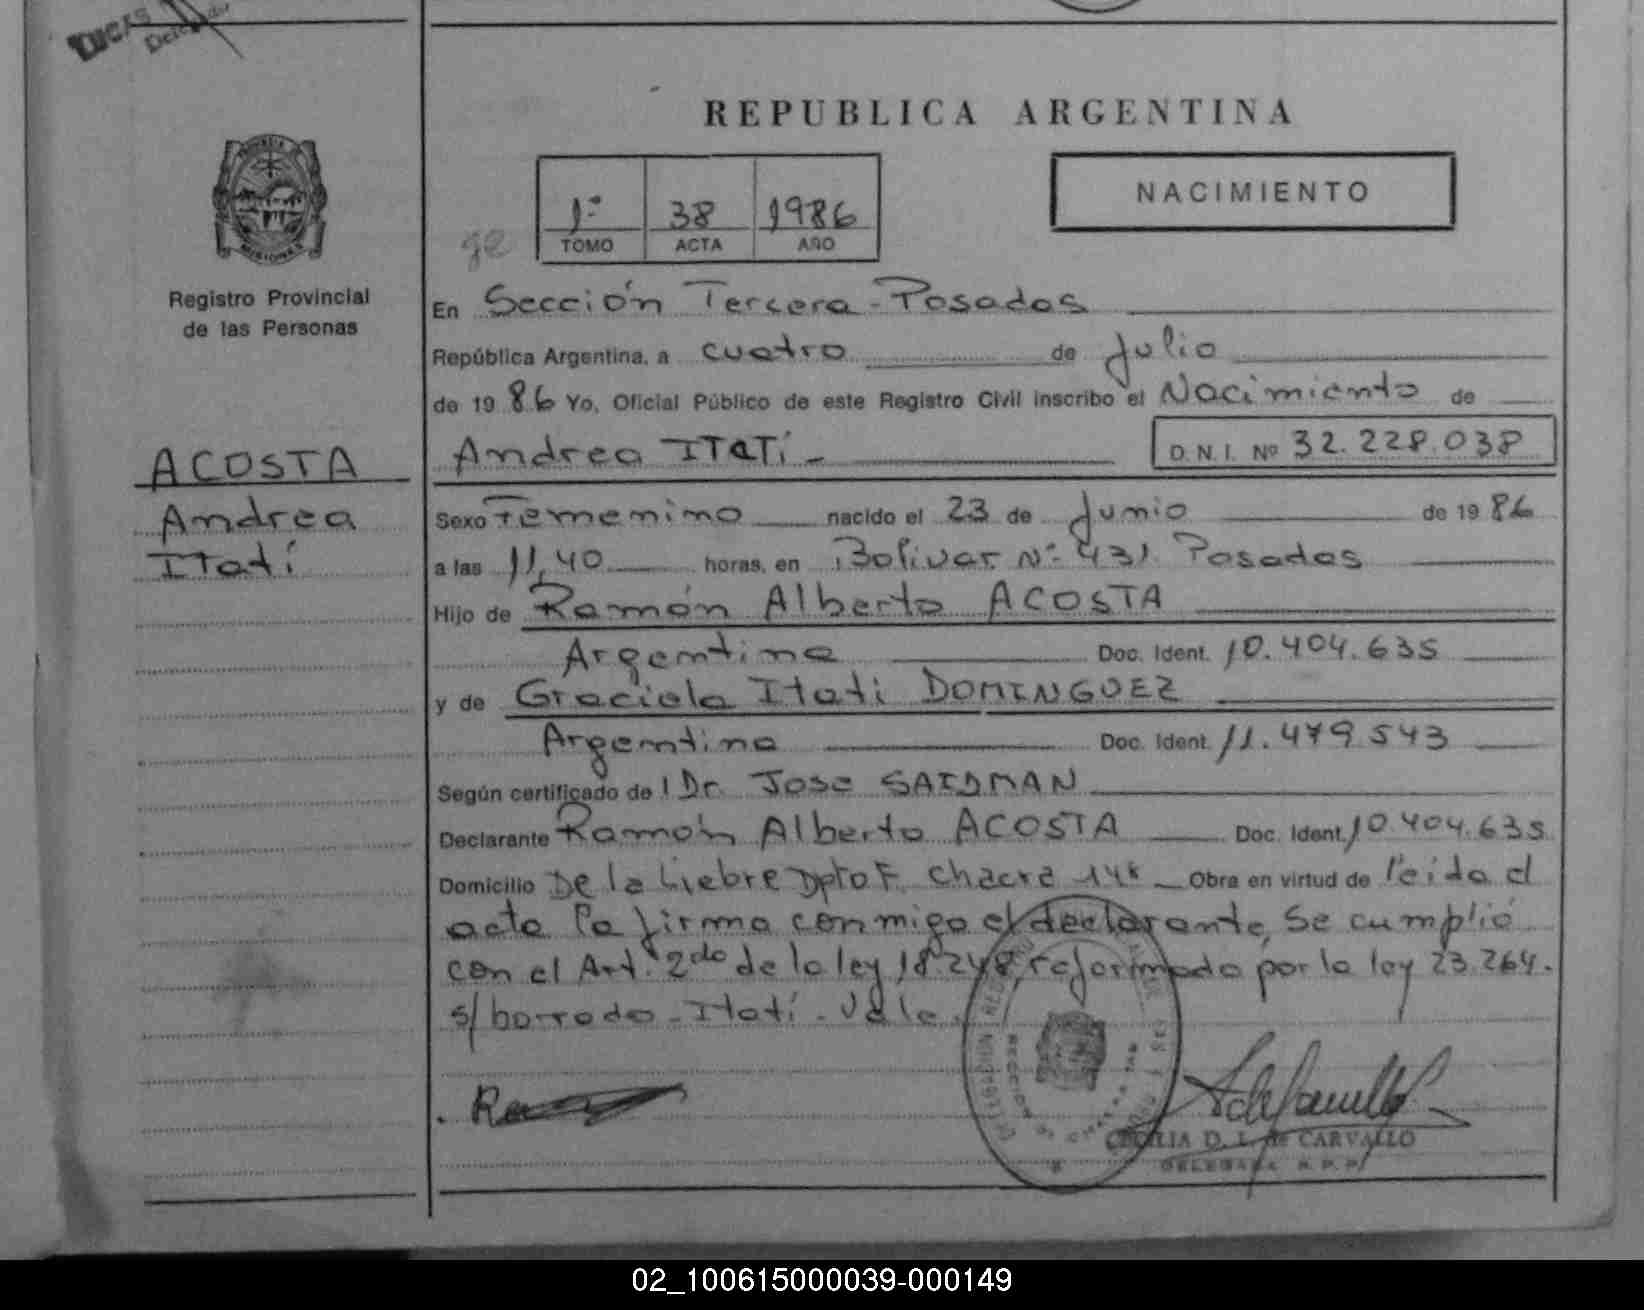 REPUBLICA ARGENTINA
NACIMIENTO
1º 38 1986
TOMO ACTA AÑO
Registro Provincial
de las Personas
ACOSTA
Andrea
Itatí
En Sección Tercera - Posadas
República Argentina, a cuatro de Julio
de 19 86 Yo, Oficial Público de este Registro Civil inscribo el Nacimiento de
Andrea ITaTí -
D.N.I. Nº 32.228.038
Sexo Femenino nacido el 23 de Junio de 19 86
a las 11,40 horas, en Bolivar Nº 431. Posadas
Hijo de Ramón Alberto ACOSTA
Argentino Doc. Ident. 10.404.635
y de Graciela Itatí DOMINGUEZ
Argentina Doc. Ident. 11.479.543
Según certificado de l Dr. José SAIDMAN
Declarante Ramón Alberto ACOSTA Doc. Ident. 10.404.635
Domicilio De la Liebre Dpto F. Chacra 148 Obra en virtud de leida el
acta la firma conmigo el declarante, Se cumplió
con el Art. 2do de la ley 18.248 reformado por la ley 23.264.
s/borrado - Itatí - Vale.
CECILIA D. L. de CARVALLO
DELEGADA R.P.P.
02_100615000039-000149